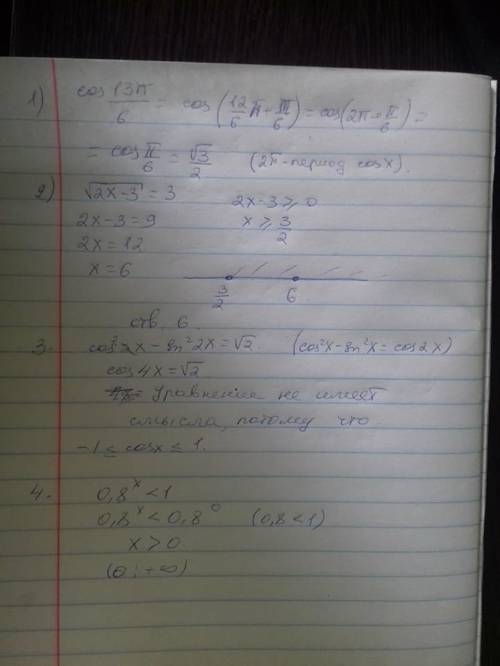 1) cos 13π/6 = cos(12/6 π + π/6) = cos(2π + π/6) =
= cos π/6 = √3/2 (2π - период cos x).
2) √(2x-3) = 3 2x-3 ≥ 0
2x-3 = 9 x ≥ 3/2
2x = 12
x = 6
3/2 6
отв. 6.
3. cos²2x - sin²2x = √2. (cos²x - sin²x = cos2x)
cos4x = √2
Уравнение не имеет
смысла, потому что
-1 ≤ cosx ≤ 1.
4. 0,8^x < 1
0,8^x < 0,8^0 (0,8 < 1)
x > 0.
(0; +∞)